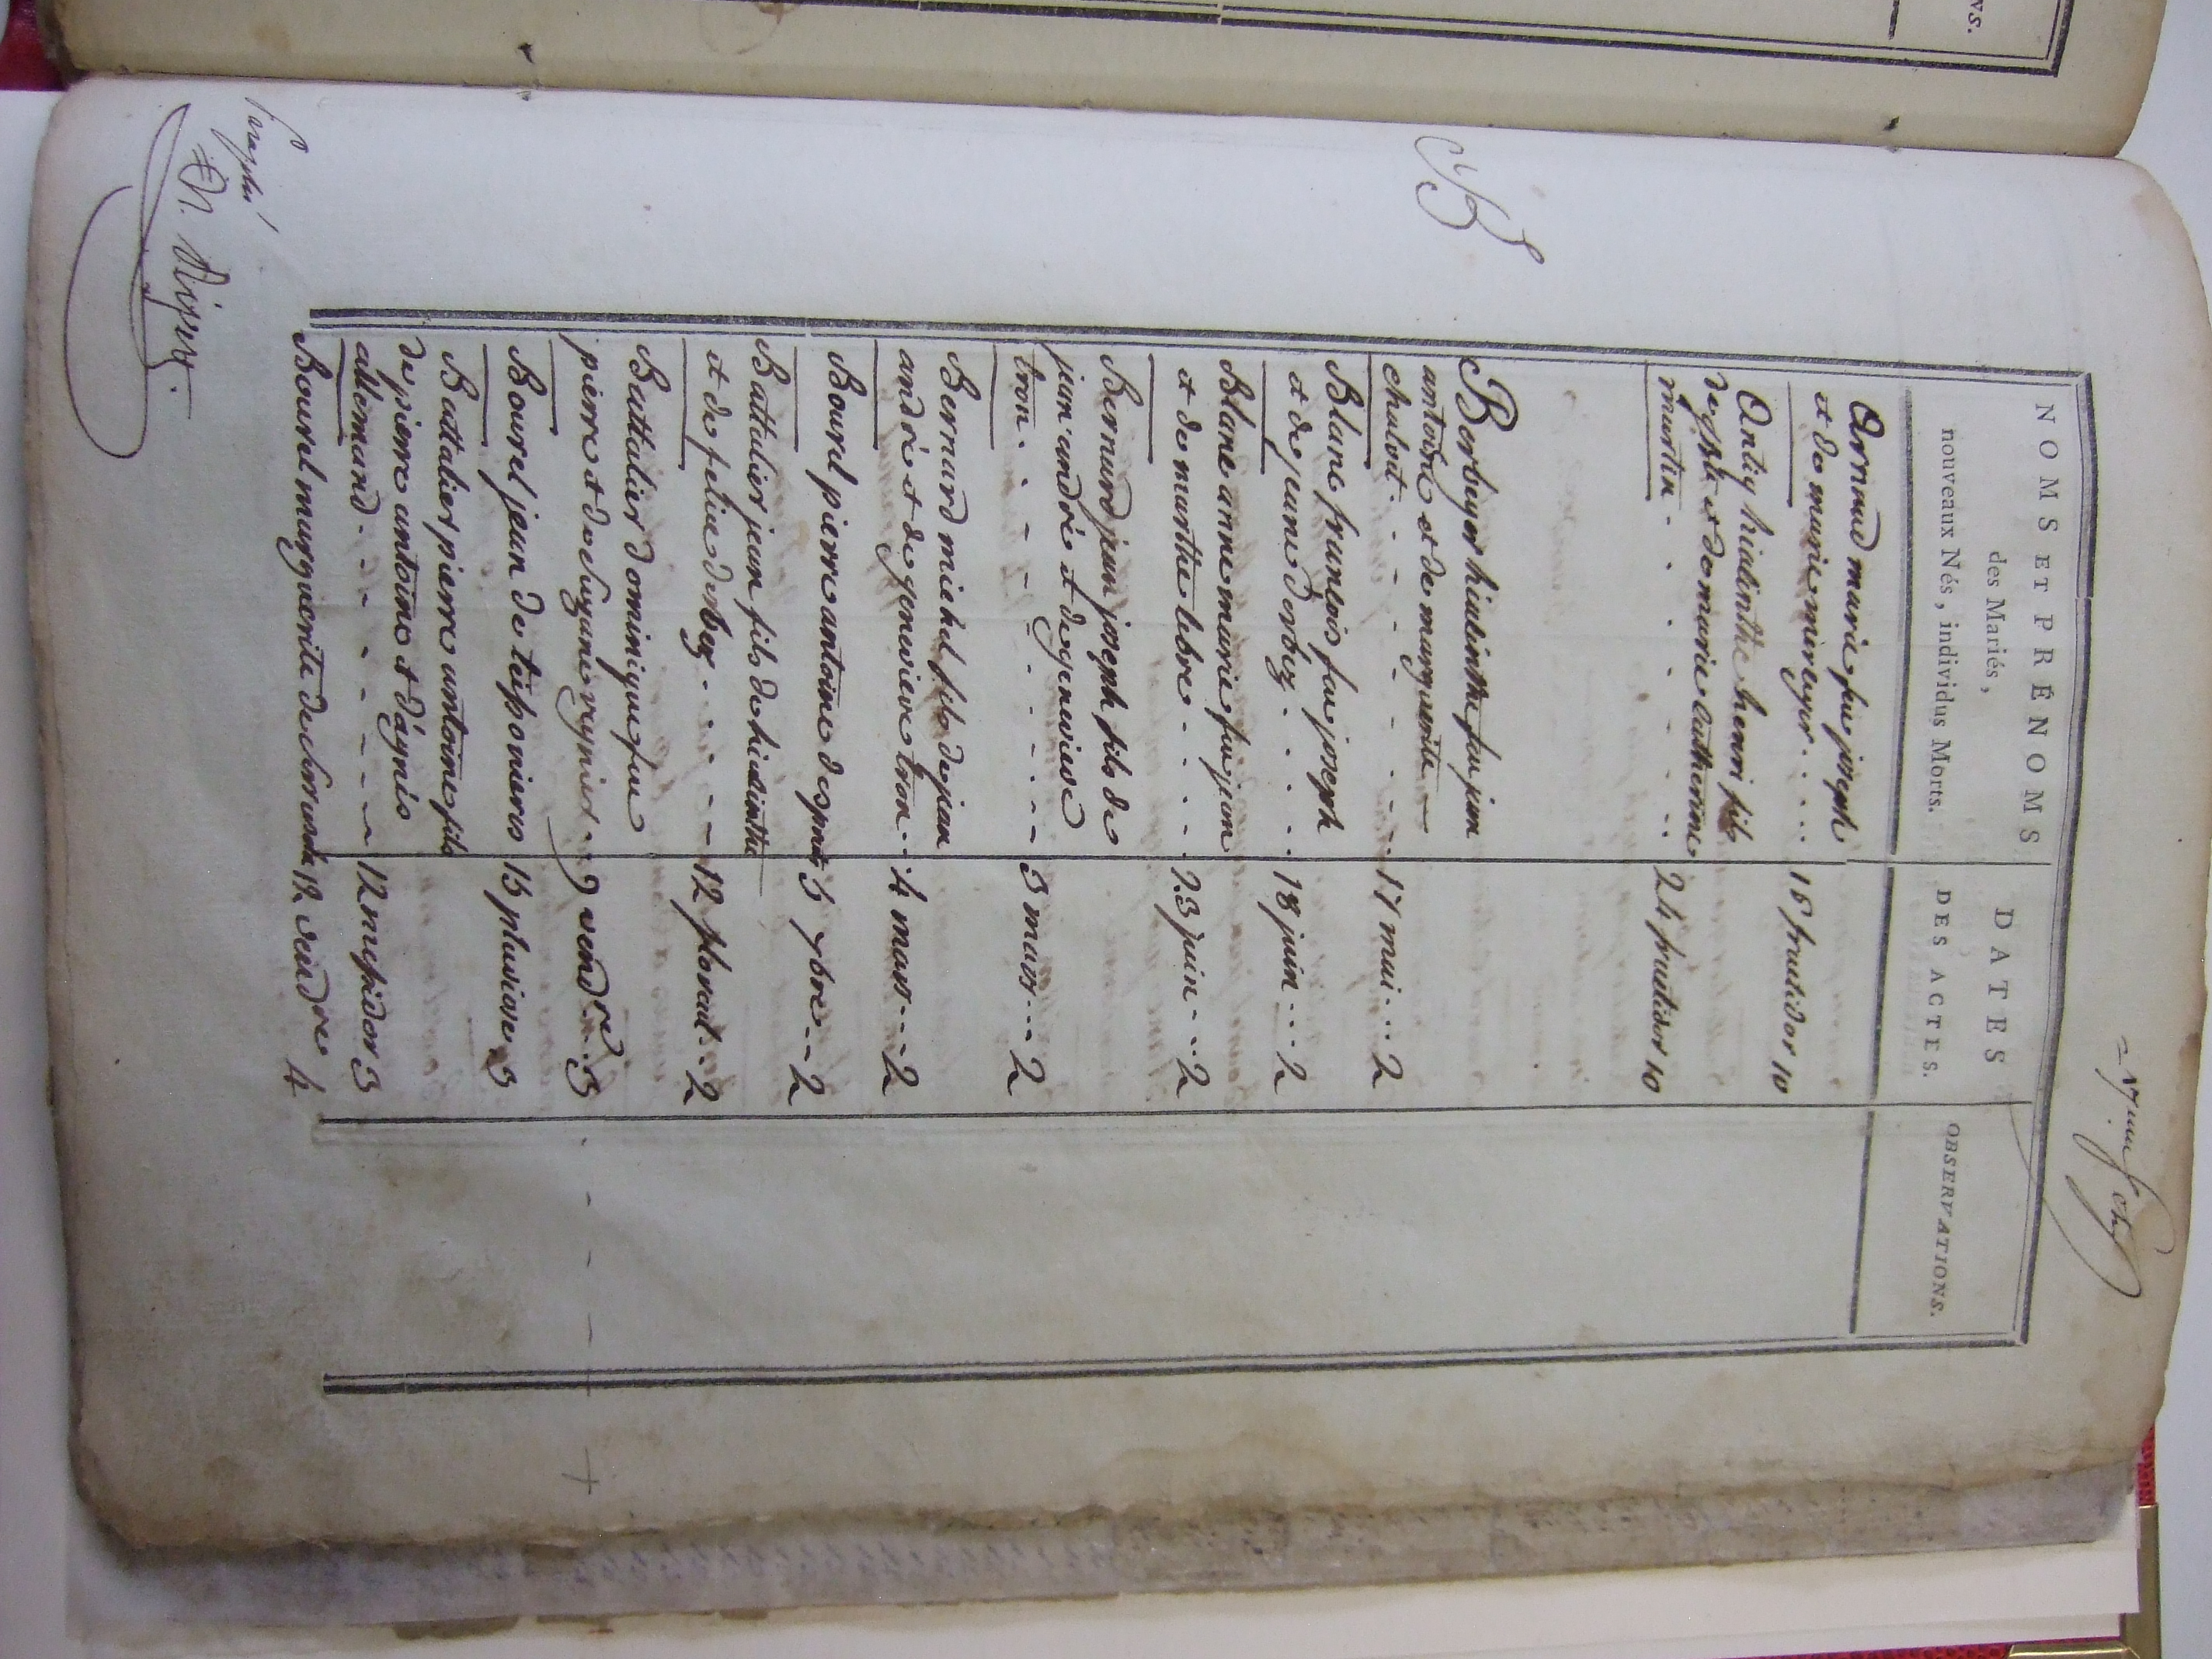 NS.
NOMS ET PRÉNOMS
des Mariés,
nouveaux Nés, individus Morts.
DATES
DES ACTES.
OBSERVATIONS.
Arnaud marie feu joseph
et de marie mireyer . . . . 16 frutidor 10
Antiq hiacinthe henri fils
de et de marie Catherine
martin . . . . . . . 24 frutidor 10
B
Berbeyer hiacinthe feu jean
antoine et de marguerite
chabot . . . . . . 17 mai . . . 2
Blanc francois feu joseph
et de jeanne derbez . . . . . 18 juin . . . 2
Blanc anne marie feu jean
et de marthe lebre . . . . . 23 juin . . . 2
Bernard jean joseph fils de
jean andré et de genevieve
tron . . . . . . . 3 mars . . . 2
Bernard michel fils de jean
andré et de genevieve tron . . . 4 mars . . . 2
Bourel pierre antoine despras 5 7bre . . . 2
Battalier jean fils de hiacinthe
et de felice derbez . . . . . 12 floreal . . 2
Battalier dominique feu
pierre et de Suzane reynier . . . 9 vendre . . . 3
Bourel jean de 15 pluviose 3
Battalier pierre antoine fils
de pierre antoine et d'agnès
allemand . . . . . . . 12 messidor 3
Bourel marguerite de 12 vendre 4
Paraphé